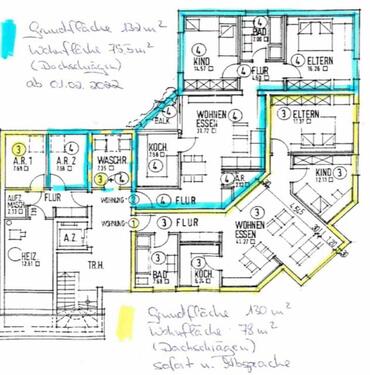 Grundfläche 132 m²
Wohnfläche 75,5 m²
(Dachschrägen)
ab 01.02.2022
KIND
14.57
4
BAD
4
ELTERN
16.26
4
FLUR
4
BALK.
WOHNEN
ESSEN
4
KOCH.
4
ELTERN
3
KIND
12.13
3
3
A.R. 1
7.69
4
A.R. 2
7.68
WASCHR.
7.25
3
4
A.R.
4
FLUR
WOHNUNG 4
WOHNUNG 3
3
FLUR
FLUR
HEIZ.
12.61
A.Z.
TR.H.
3
BAD
7.69
3
KOCH.
3
WOHNEN
ESSEN
41.27
4.545
Grundfläche 130 m²
Wohnfläche 78 m²
(Dachschrägen)
sofort n. Absprache